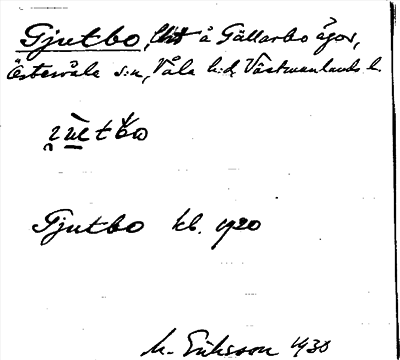 Gjutbo, lht å Gällarbo ägor,
Östervåla s:n, Våla h:d, Västmanlands l.
Gjutbo kb. 1920
M. Eriksson 1938